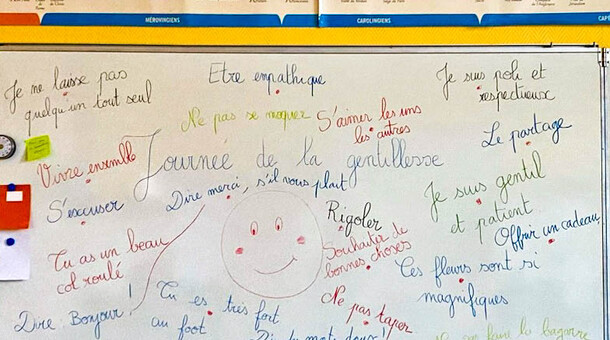 MÉROVINGIENS
CAROLINGIENS
Je ne laisse pas
quelqu'un tout seul
Etre empathique
Je suis poli et
respectueux
Ne pas se moquer
S'aimer les uns
les autres
Le partage
Vivre ensemble
Journée de la gentillesse
Dire merci, s'il vous plait
Je suis gentil
et patient
S'excuser
Rigoler
Offrir un cadeau
Souhaiter de
bonnes choses
Tu as un beau
col roulé
Ces fleurs sont si
magnifiques
Dire Bonjour !
Tu es très fort
au foot
Ne pas taper
la bagarre